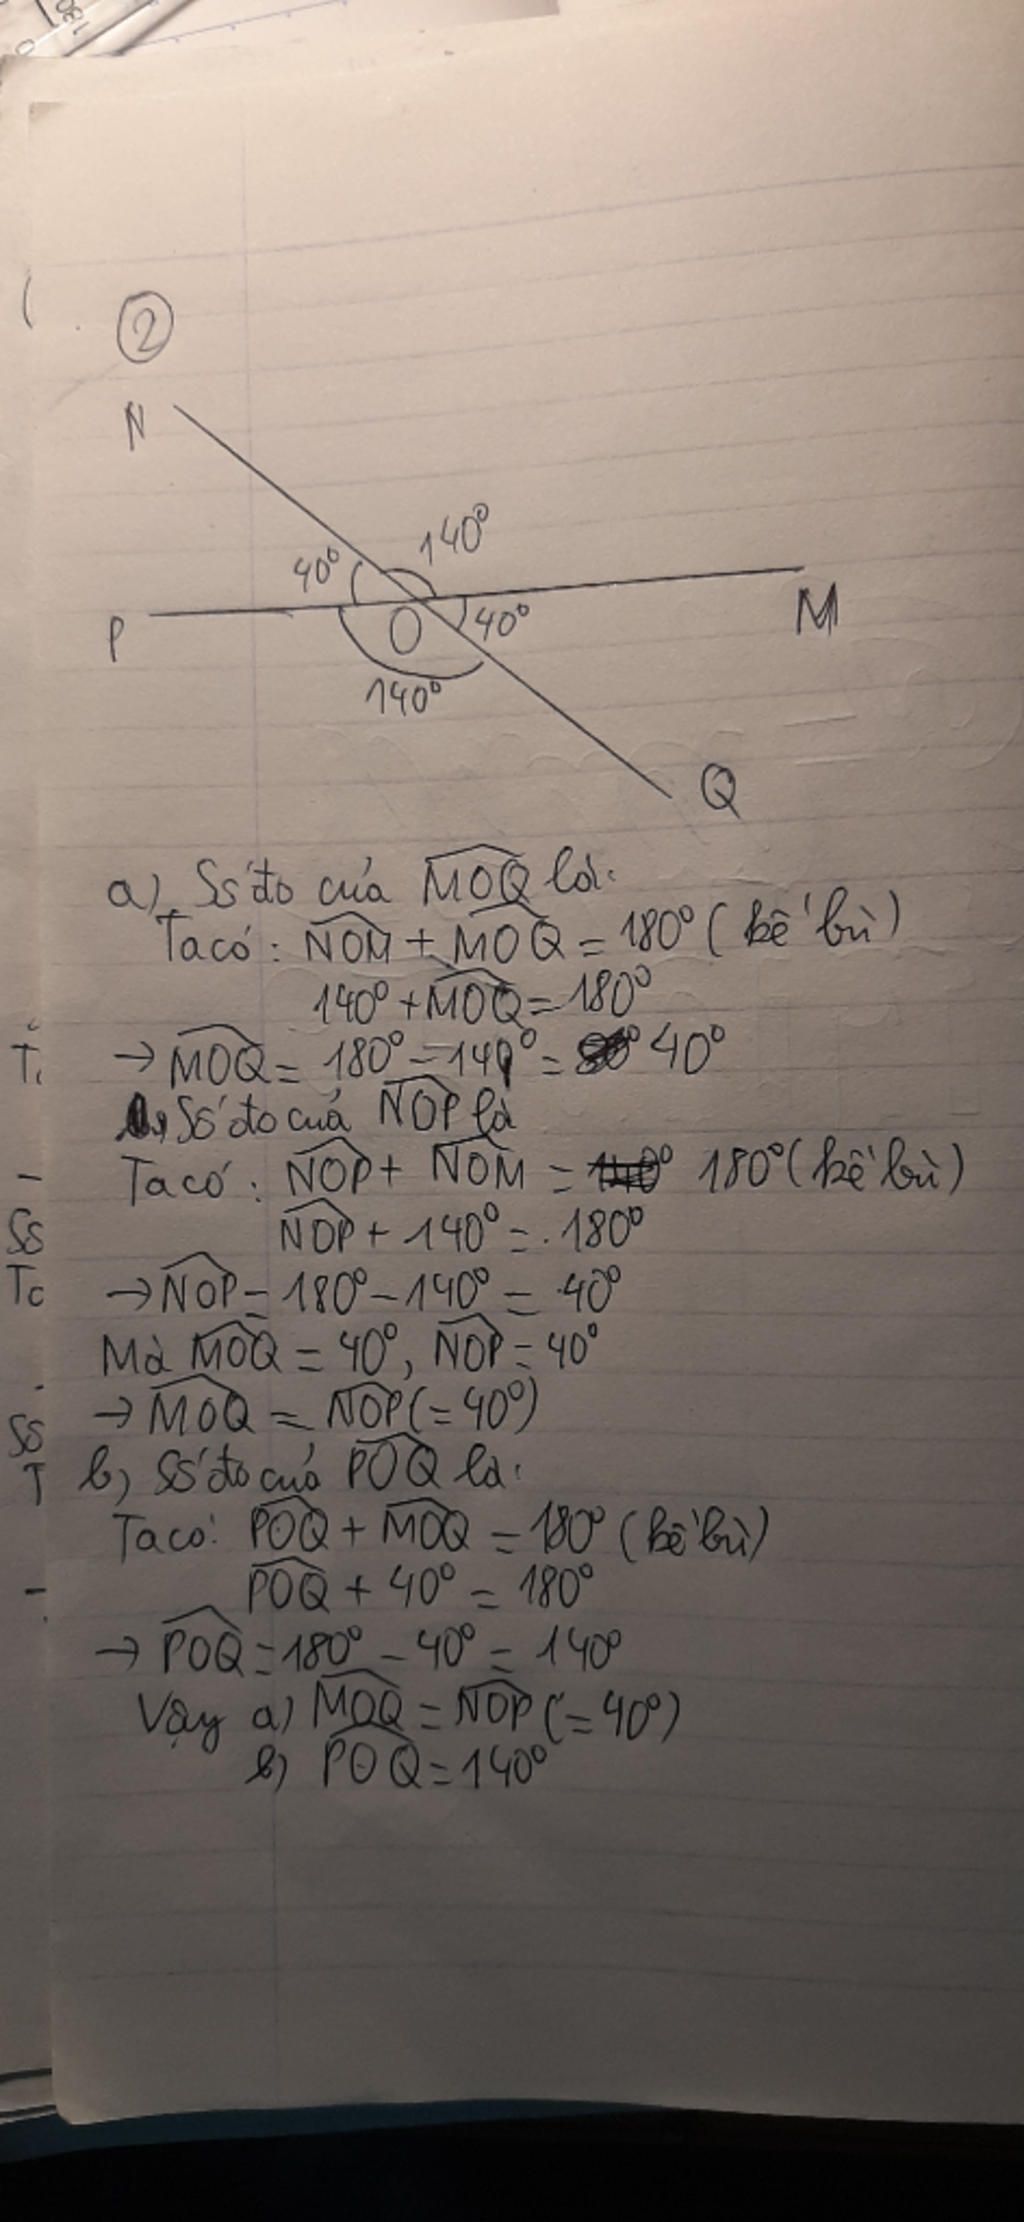 130
(
2
N
140°
40°
P
O
40°
M
140°
Q
a) Số đo của MOQ là:
Ta có: NOM + MOQ = 180° (kề bù)
140° + MOQ = 180°
→ MOQ = 180° - 140° = 40°
Số đo của NOP là
Ta có: NOP + NOM = 180° (kề bù)
NOP + 140° = 180°
→ NOP = 180° - 140° = 40°
Mà MOQ = 40°, NOP = 40°
→ MOQ = NOP (= 40°)
b) Số đo của POQ là:
Ta có: POQ + MOQ = 180° (kề bù)
POQ + 40° = 180°
→ POQ = 180° - 40° = 140°
Vậy a) MOQ = NOP (= 40°)
b) POQ = 140°